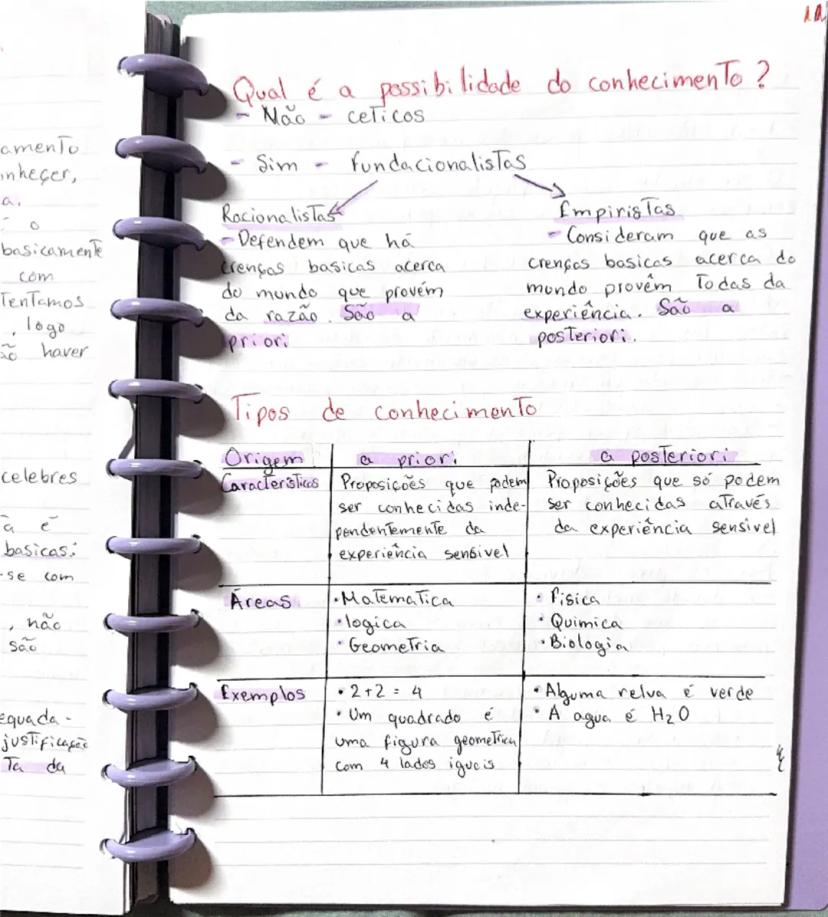 amento
nheçer,
a.
o
basicamente
com
Tentamos
, logo
ão haver
celebres
a é
basicas:
-se com
, não
são
equada-
justificação
Ta da
Qual é a possibilidade do conhecimento?
- Não - ceticos
- Sim - Fundacionalistas
Racionalistas
- Defendem que há
crenças basicas acerca
do mundo que provém
da razão. São a
priori
Empiristas
- Consideram que as
crenças basicas acerca do
mundo provêm Todas da
experiência. São a
posteriori.
Tipos de conhecimento
Origem
a priori
a posteriori
Caracteristicas
Proposições que podem
ser conhecidas inde-
pendentemente da
experiência sensivel
Proposições que só podem
ser conhecidas através
da experiência sensivel
Áreas
• Matematica
• logica
• Geometria
• Fisica
• Quimica
• Biologia
Exemplos
• 2+2 = 4
• Um quadrado é
uma figura geometrica
com 4 lados iguais
• Alguma relva é verde
• A agua é H₂O